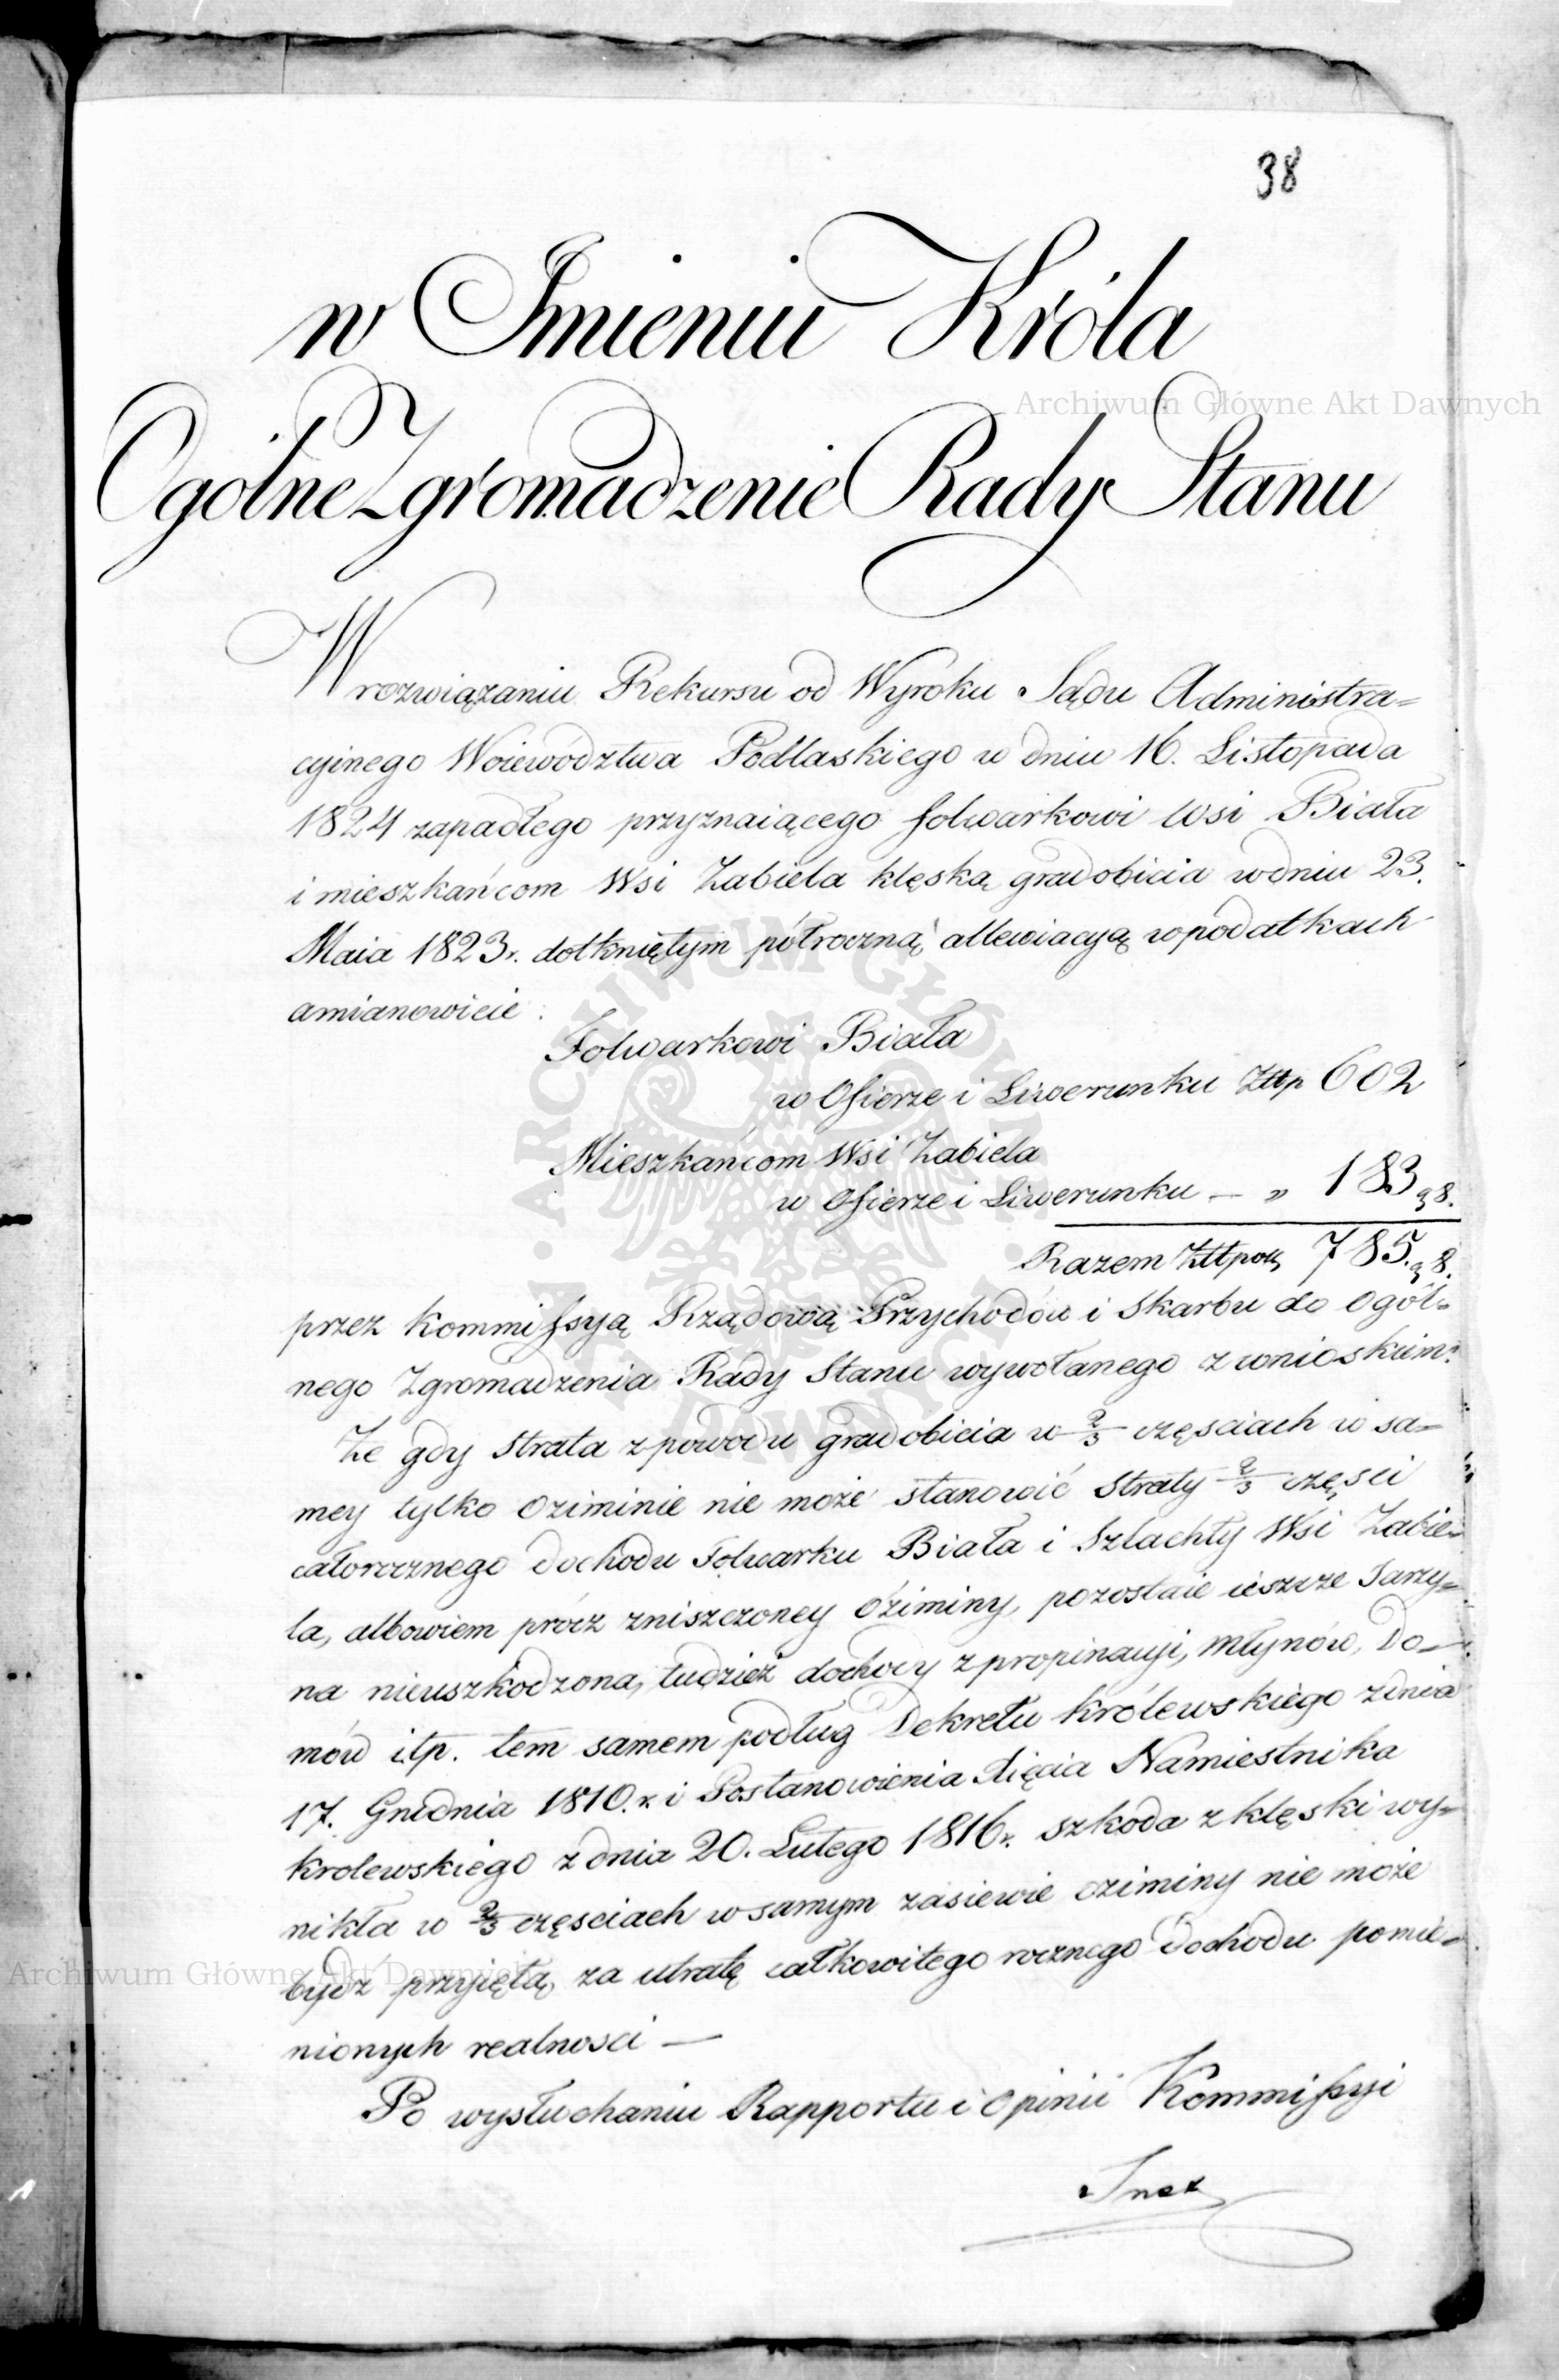 38
w Imieniu Króla
Archiwum Główne Akt Dawnych
Ogólne Zgromadzenie Rady Stanu
W rozwiązaniu Rekursu od Wyroku Sądu Administra=
cyinego Woiewództwa Podlaskiego w dniu 16. Listopada
1824 zapadłego przyznaiącego folwarkowi wsi Biała
i mieszkańcom Wsi Zabiela klęską gradobicia w dniu 23.
Maia 1823 r. dotkniętym półroczną allewiacyą w podatkach
a mianowicie:
Folwarkowi Biała
w Ofierze i Liwerunku Złtp 602
Mieszkańcom Wsi Zabiela
w Ofierze i Liwerunku — „ 183 g 8.
Razem Złtpol 785. g 8.
przez Kommissyą Rządową Przychodów i Skarbu do Ogól=
nego Zgromadzenia Rady Stanu wywołanego z wnioskiem:
Że gdy strata z powodu gradobicia w 2/3 częsciach w sa=
mey tylko oziminie nie może stanowić straty 2/3 częsci
całorocznego dochodu Folwarku Biała i Szlachty Wsi Zabie=
la, albowiem prócz zniszczoney oziminy, pozostaie ieszcze Jarzy=
na nieuszkodzona, tudzież dochody z propinacyi, młynów, Do=
mów itp. tem samem podług Dekretu Królewskiego z dnia
17. Grudnia 1810. r. i Postanowienia Xięcia Namiestnika
Krolewskiego z dnia 20. Lutego 1816 r. szkoda z klęski wy=
nikła w 2/3 częsciach w samym zasiewie oziminy nie może
bydź przyiętą za utratę całkowitego rocznego dochodu pomie=
nionych realnosci —
Po wysłuchaniu Rapportu i Opinii Kommissyi
ARCHIWUM GŁÓWNE AKT DAWNYCH
Archiwum Główne Akt Dawnych